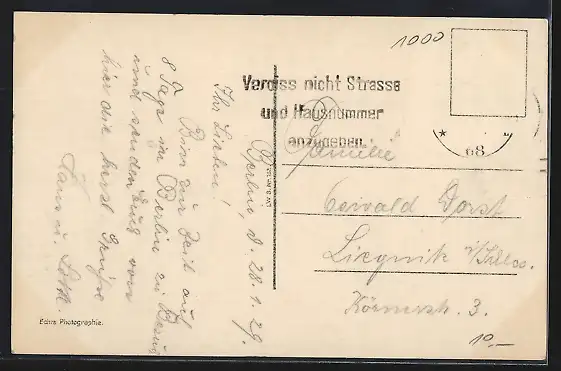 1000
Vergiss nicht Strasse
und Hausnummer
anzugeben
68
Familie
Oswald Dorst
Liegnitz i/Schles.
Körnerstr. 3.
10.—
Berlin, d. 28.1.29.
Ihr Lieben!
Bin zur Zeit auf
8 Tage in Berlin zu Besuch
und senden Euch von
hier die herzl. Grüße
Echte Photographie.